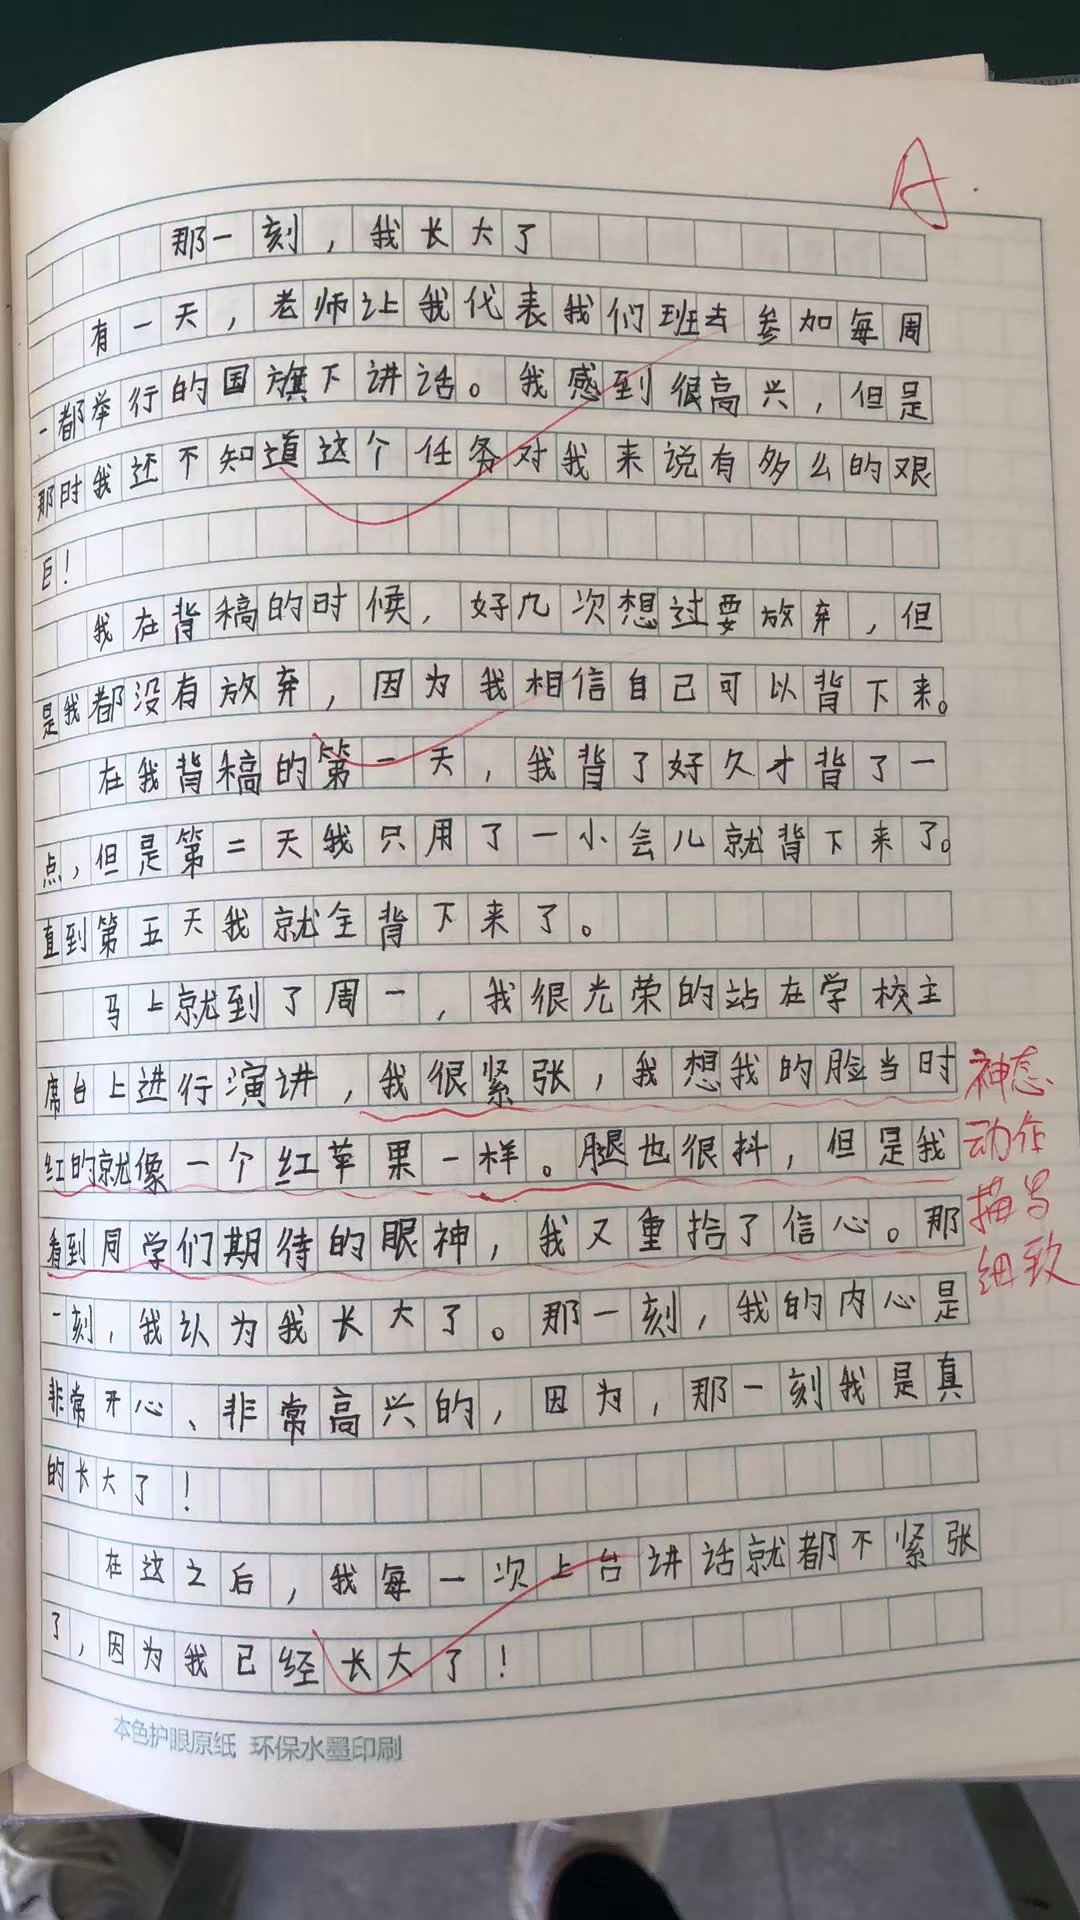 A.
那一刻，我长大了
有一天，老师让我代表我们班去参加每周
一都举行的国旗下讲话。我感到很高兴，但是
那时我还不知道这个任务对我来说有多么的艰
巨！
我在背稿的时候，好几次想过要放弃，但
是我都没有放弃，因为我相信自己可以背下来。
在我背稿的第一天，我背了好久才背了一
点，但是第二天我只用了一小会儿就背下来了。
直到第五天我就全背下来了。
马上就到了周一，我很光荣的站在学校主
席台上进行演讲，我很紧张，我想我的脸当时
红的就像一个红苹果一样。腿也很抖，但是我
看到同学们期待的眼神，我又重拾了信心。那
一刻，我认为我长大了。那一刻，我的内心是
非常开心、非常高兴的，因为，那一刻我是真
的长大了！
在这之后，我每一次上台讲话就都不紧张
了，因为我已经长大了！
神态
动作
描写
细致
本色护眼原纸 环保水墨印刷